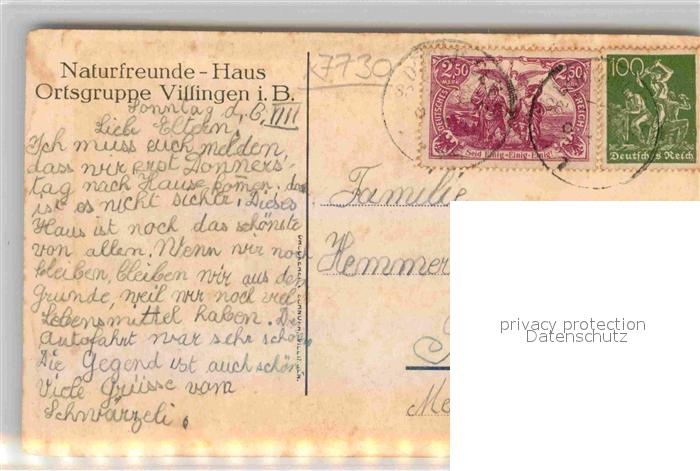 Naturfreunde-Haus
Ortsgruppe Villingen i. B.
k7730
Sonntag d. 6. VIII
Liebe Eltern,
Ich muss euch melden
dass wir erst Donners-
tag nach Hause komen. da
ist es nicht sicher. Dieses
Haus ist noch das schönste
von allen. Wenn wir noch
bleiben, bleiben wir aus dem
Grunde, weil wir noch viel
Lebensmittel haben. Die
Autofahrt war sehr schön.
Die Gegend ist auch schön
Viele Grüsse vom
Schwärzeli.
2,50 2,50
MARK
DEUTSCHES REICH
Seid Einig-Einig-Einig!
100
Deutsches Reich
Familie
Hemmer
privacy protection
Datenschutz